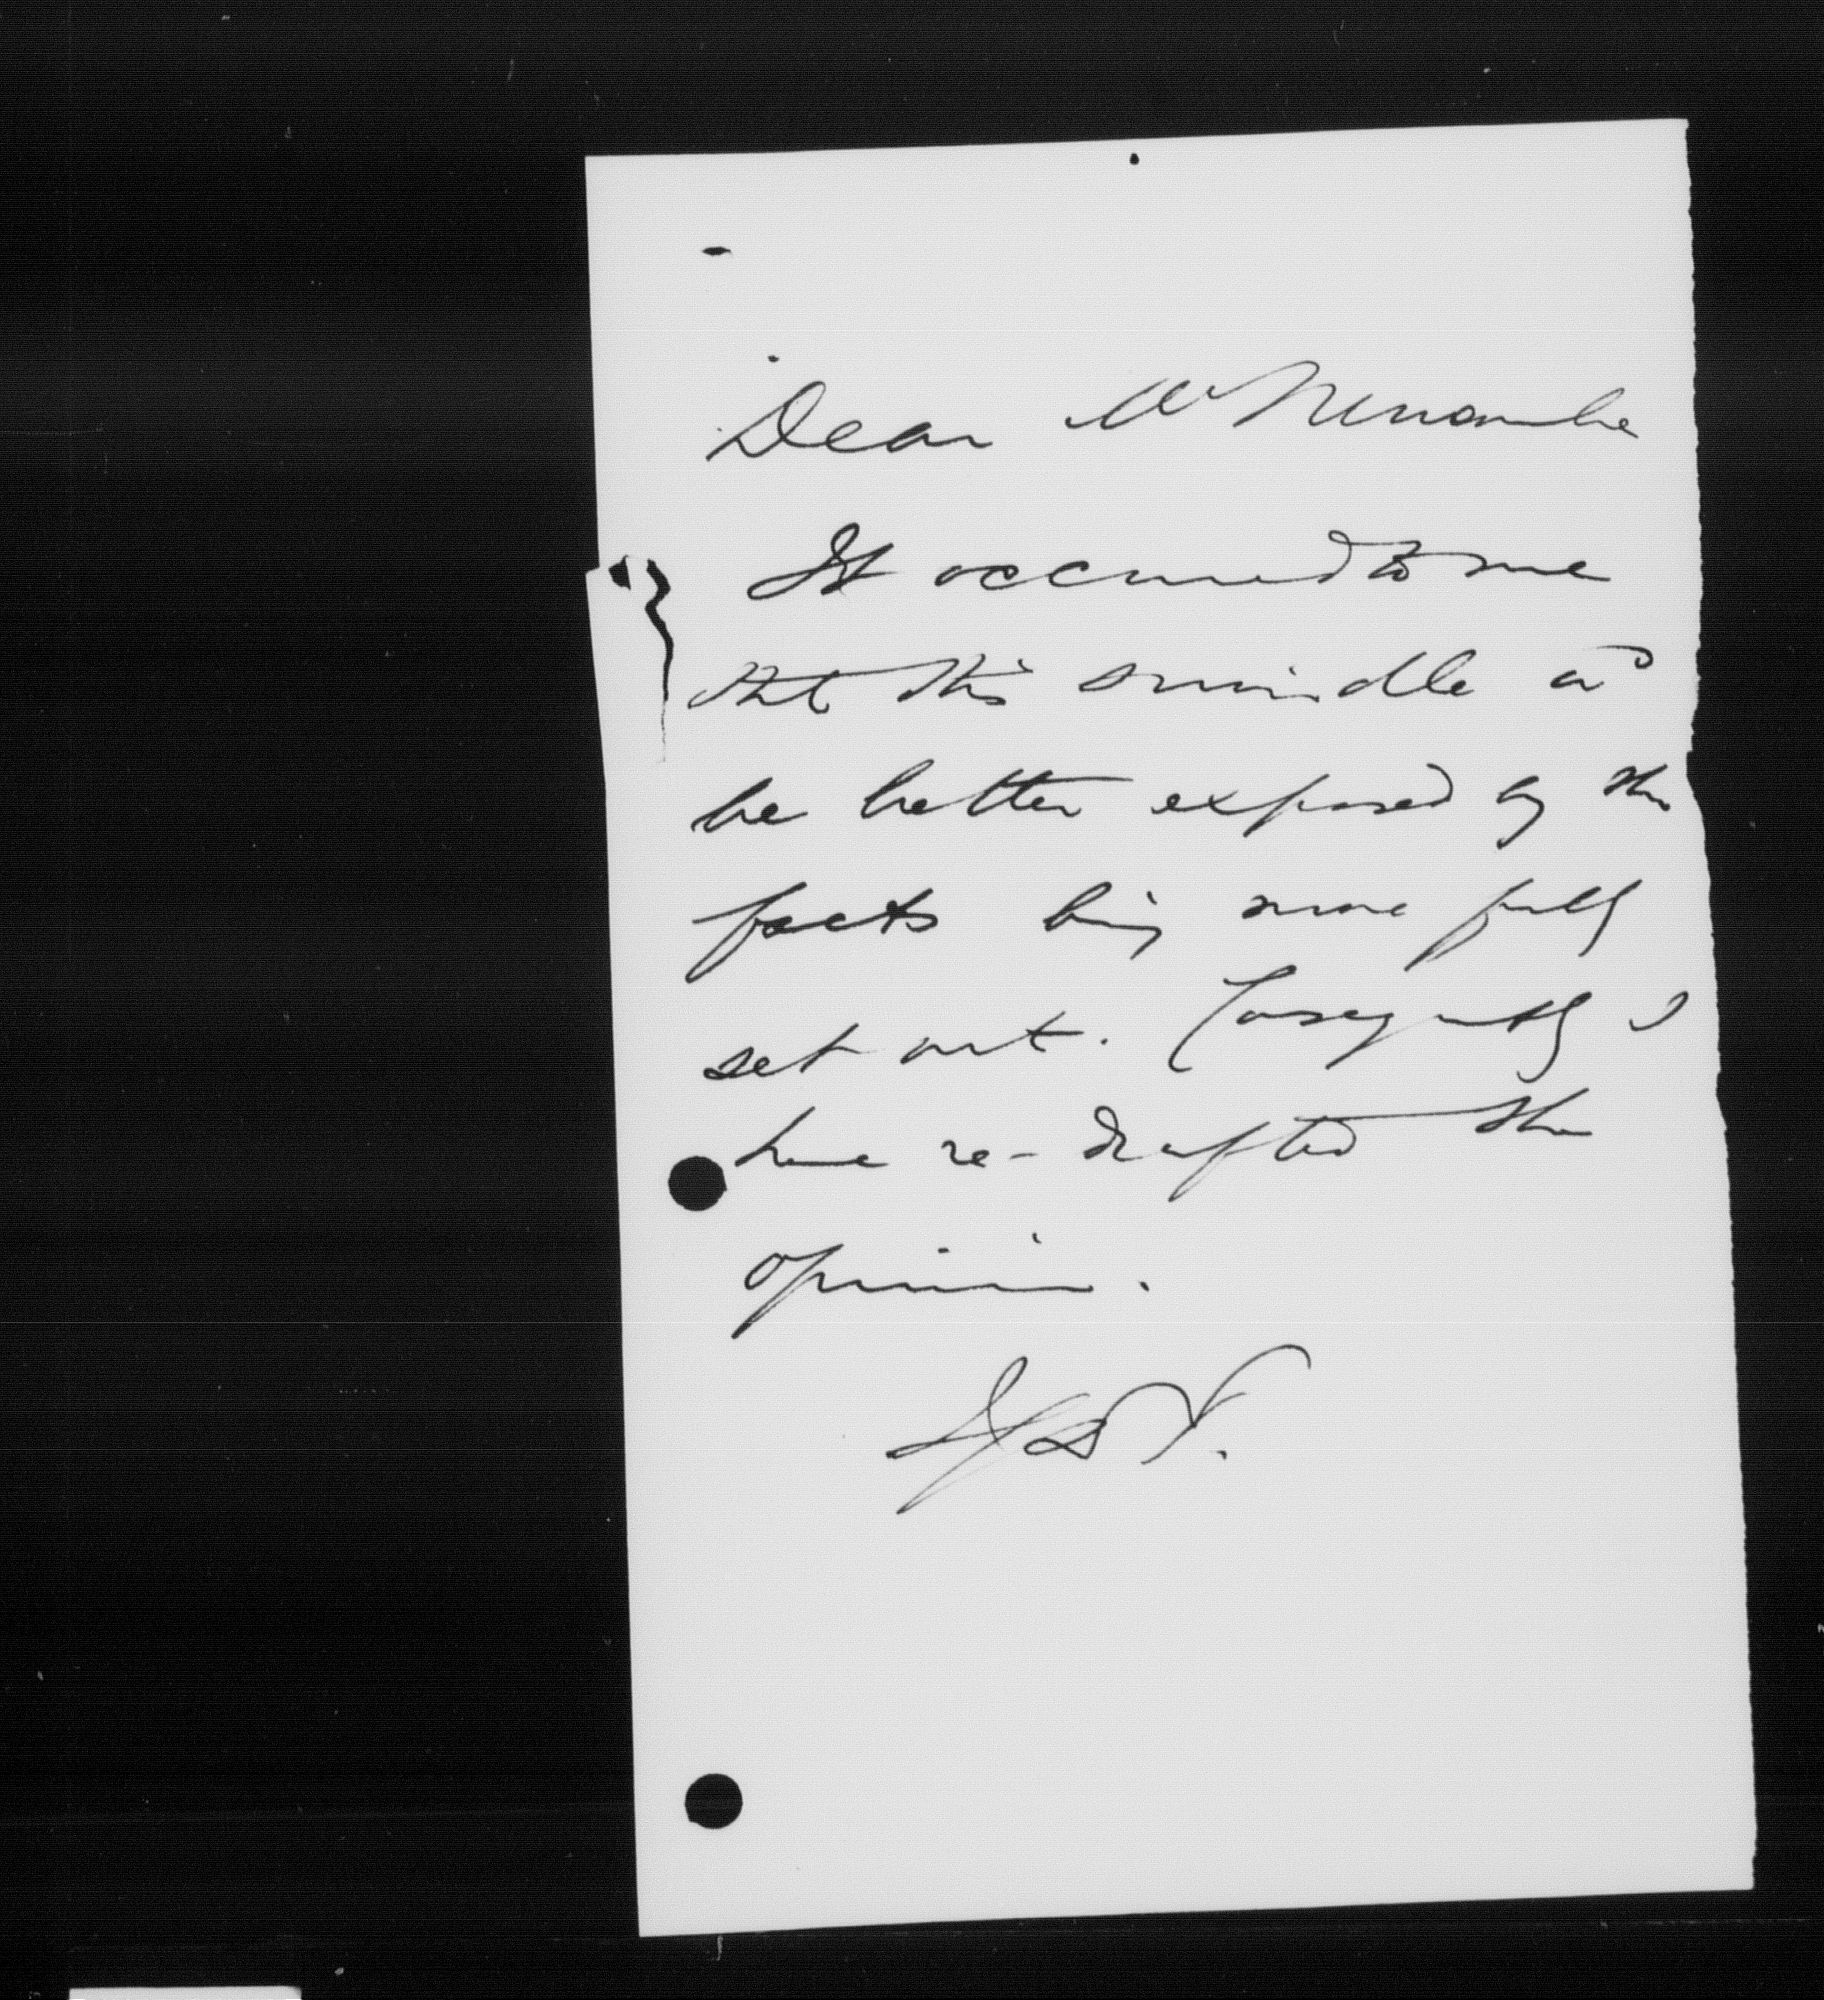 Dear Mr Newcombe
It occurred to me
that this swindle wd
be better exposed by the
facts being more fully
set out. Consequently I
have re-drafted the
opinion.